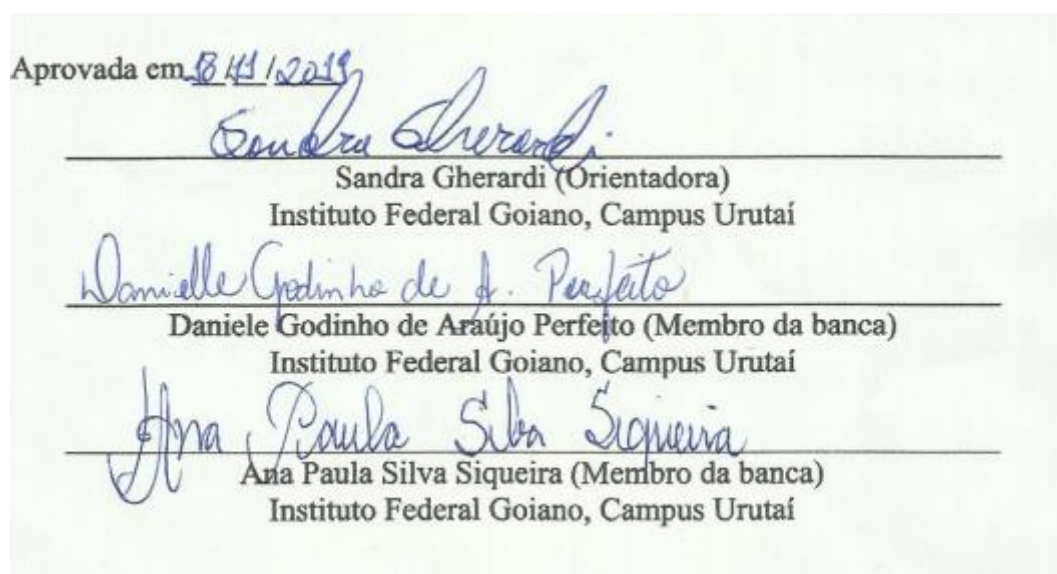 Aprovada em 18/11/2019
Sandra Gherardi.
Sandra Gherardi (Orientadora)
Instituto Federal Goiano, Campus Urutaí
Danielle Godinho de A. Perfeito
Daniele Godinho de Araújo Perfeito (Membro da banca)
Instituto Federal Goiano, Campus Urutaí
Ana Paula Silva Siqueira
Ana Paula Silva Siqueira (Membro da banca)
Instituto Federal Goiano, Campus Urutaí